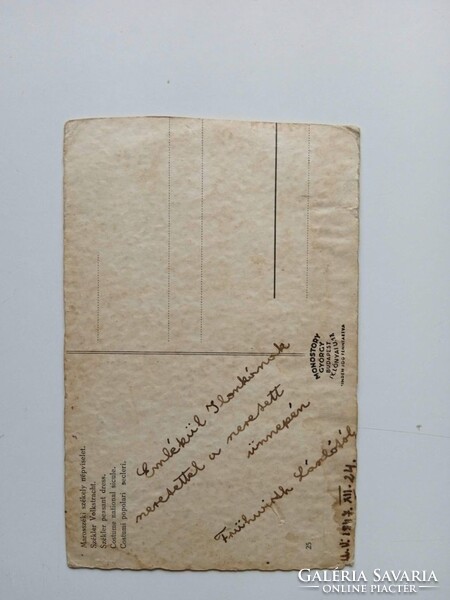 Marosszéki székely népviselet.
Szekler Volkstracht.
Székler peasant dress.
Costume national sicule.
Costumi popolari seculeri.
Emlékül Ilonkának
szeretettel a szeretett
ünnepén
Frühwirth Lászlótól
1947. XII. 24.
25
MONOSTORY
GYÖRGY
BUDAPEST
MINDEN JOG FENNTARTVA
GALÉRIA SAVARIA
ONLINE PIACTÉR